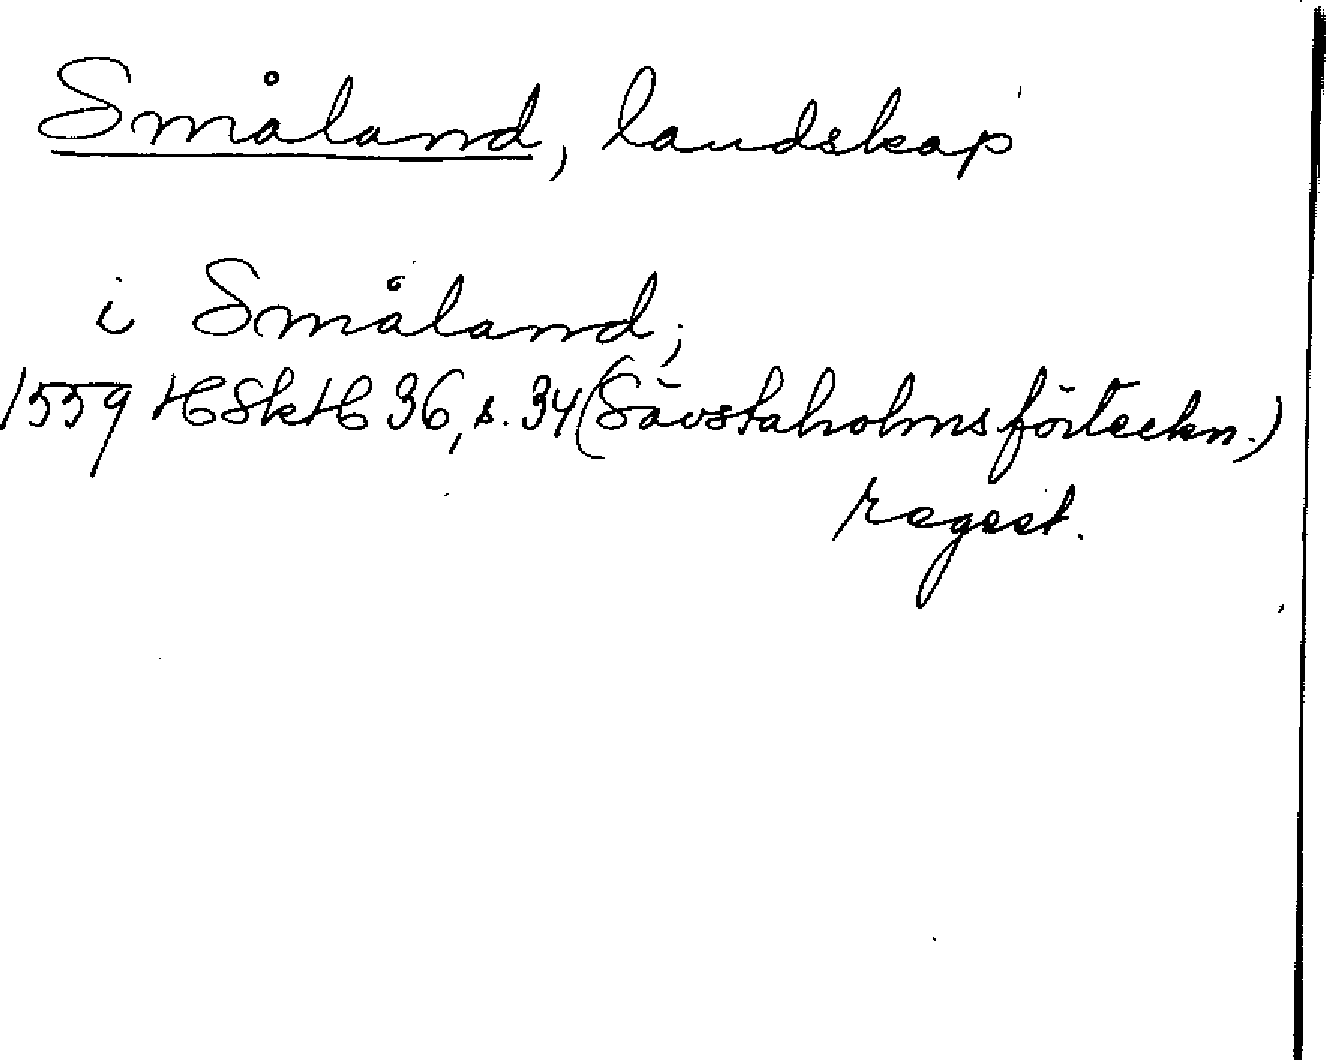 Småland, landskap
i Småland;
1559 HSkH 36, s. 34 (Sävstaholmsförteckn.)
regest.